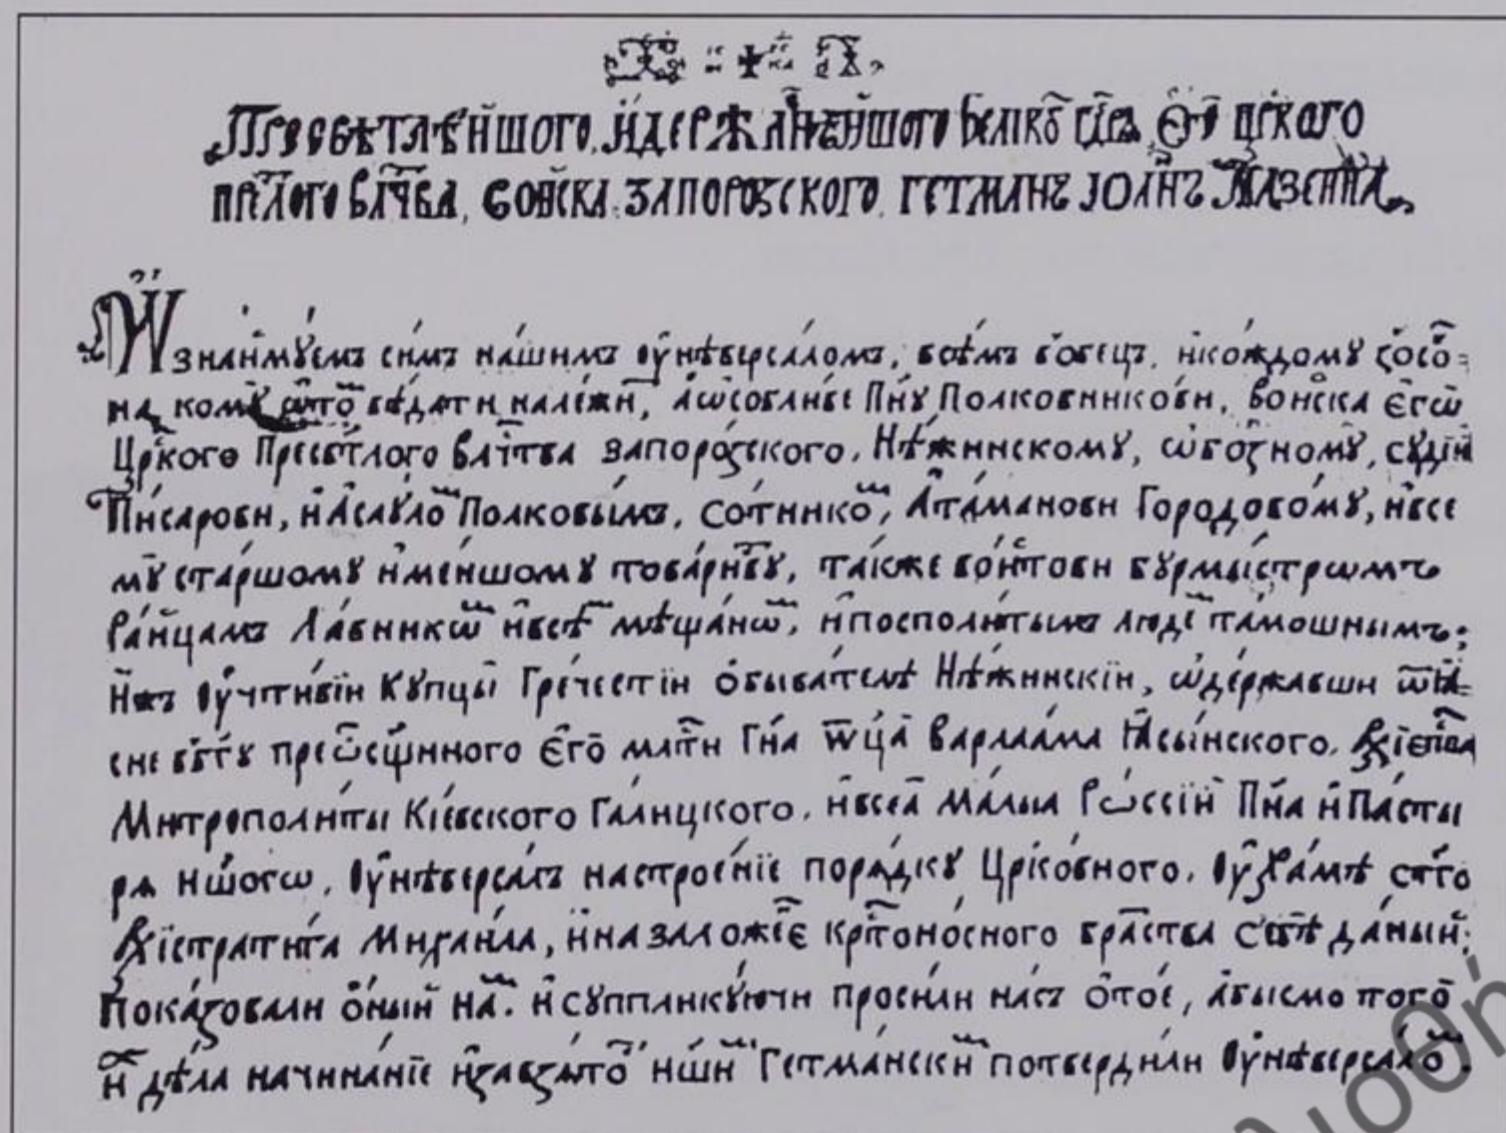 Пресвѣтлѣйшого. И Держа́внѣйшого Велико̃ Гд҃рѧ Єго̃ Цр҃кого
Пресл҃ого Вл҃чтва, Войска Запорозского Гетманъ Іоаннъ Мазепа
Ѡзнаймуемъ симъ на́шимъ оуни́версаломъ, всѣмъ вобецъ, и ко́ждому зосо̃=
на, кому ѡ то̃ вѣдати належи̃, а ѡсобливе П҃ну Полковникови, Войска Єгѡ
Цр҃кого Пресвѣ҃тлого Вл҃чтва Запоро́зского, Нѣ́жинскому, ѡбо́зному, судіи
Пи́сарови, и Асауло̃ Полковы́мъ, со́тнико̃, Ата́манови Городово́му, и все
му ста́ршому и ме́ншому това́риству, та́кже во́йтови бурми́стромъ
Ра́йцамъ Ла́вникѡ̃ и всѣ̃ мѣща́нѡ̃, и посполи́тымъ люде̃ та́мошнымъ;
Ижъ оучти́віи Купцы̀ Гре́честіи обыва́телѣ Нѣ́жинскіи, ѡдержавши ѿ Я=
сне въ Б҃гу преѡсщ҃нного Єго̃ мл҃ти Г҃на ѿца̀ Варлаа́ма Ясы́нского, Архіеп҃па
Митрополи́ты Кіе́вского Га́лицкого, и всеа̀ Ма́лыа Рѡ́ссіи П҃на и Па́сты
рѧ н҃шого, Оуниверса́лъ на строе́ніе поря́дку Цр҃ко́вного, оу хра́мѣ ст҃го
Архістрати́га Михаи́ла, и на заложе̃є Крⷭ҇тоно́сного бра́ства себѣ да́ный;
Пока́зовали о́ный на̃. и суппликую́чи проси́ли насъ о то́е, абысмо того̃
и̃ дѣла начина́ніе и завзято̃ н҃ши̃ Гетма́нски̃ потверди́ли Оуниверса́ло̃.
λιοθή